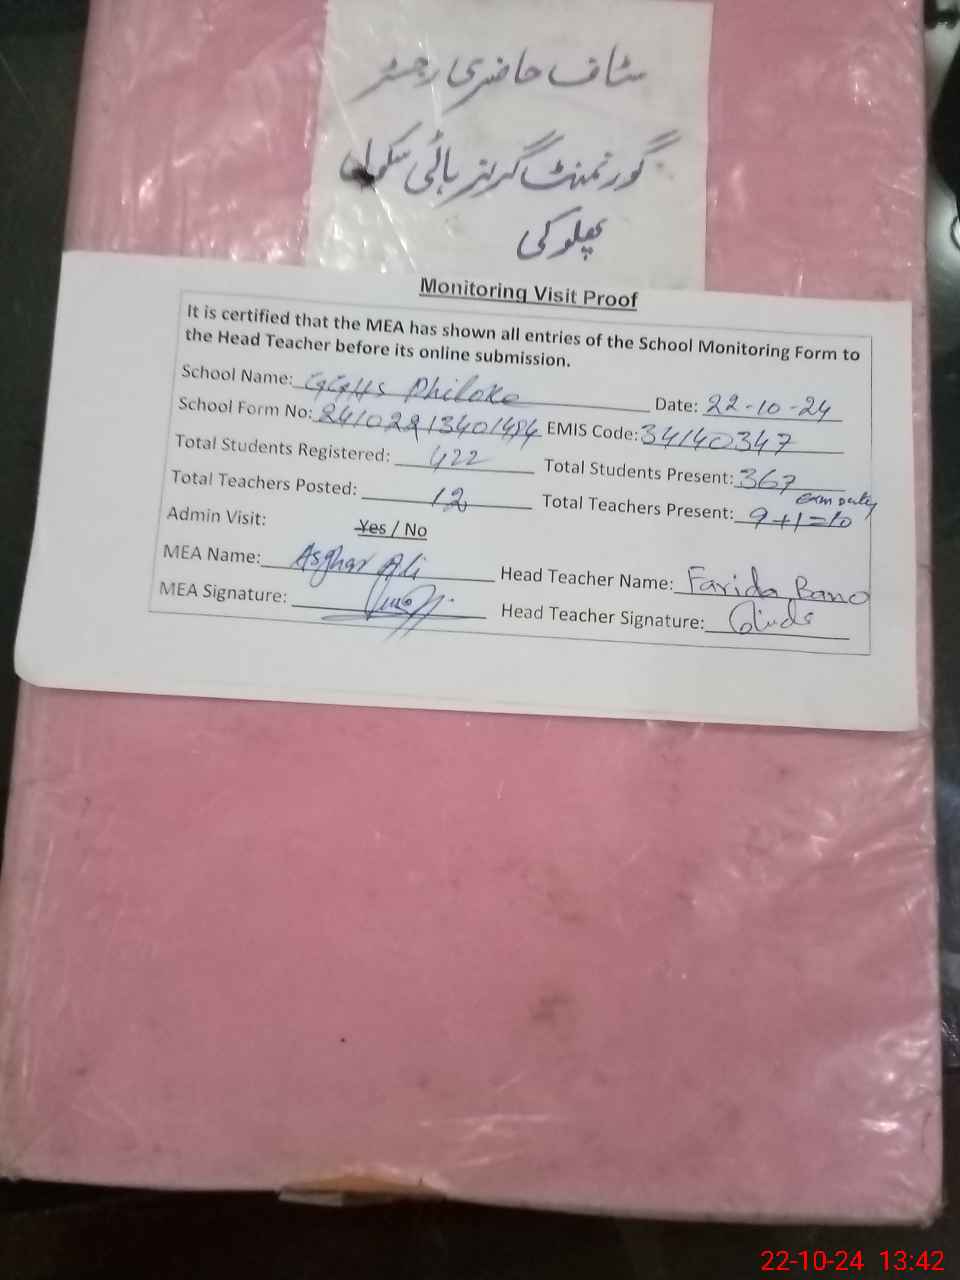 سٹاف حاضری رجسٹر
گورنمنٹ گرلز ہائی سکول
پھلوکی
Monitoring Visit Proof
It is certified that the MEA has shown all entries of the School Monitoring Form to
the Head Teacher before its online submission.
School Name: GGHS Philoke Date: 22-10-24
School Form No: EMIS Code: 34140347
Total Students Registered: 422 Total Students Present: 367
Total Teachers Posted: 12 Total Teachers Present: 9+1=10 Exm duty
Admin Visit: Yes / No
MEA Name: Asghar Ali Head Teacher Name: Farida Bano
MEA Signature: Head Teacher Signature:
22-10-24 13:42